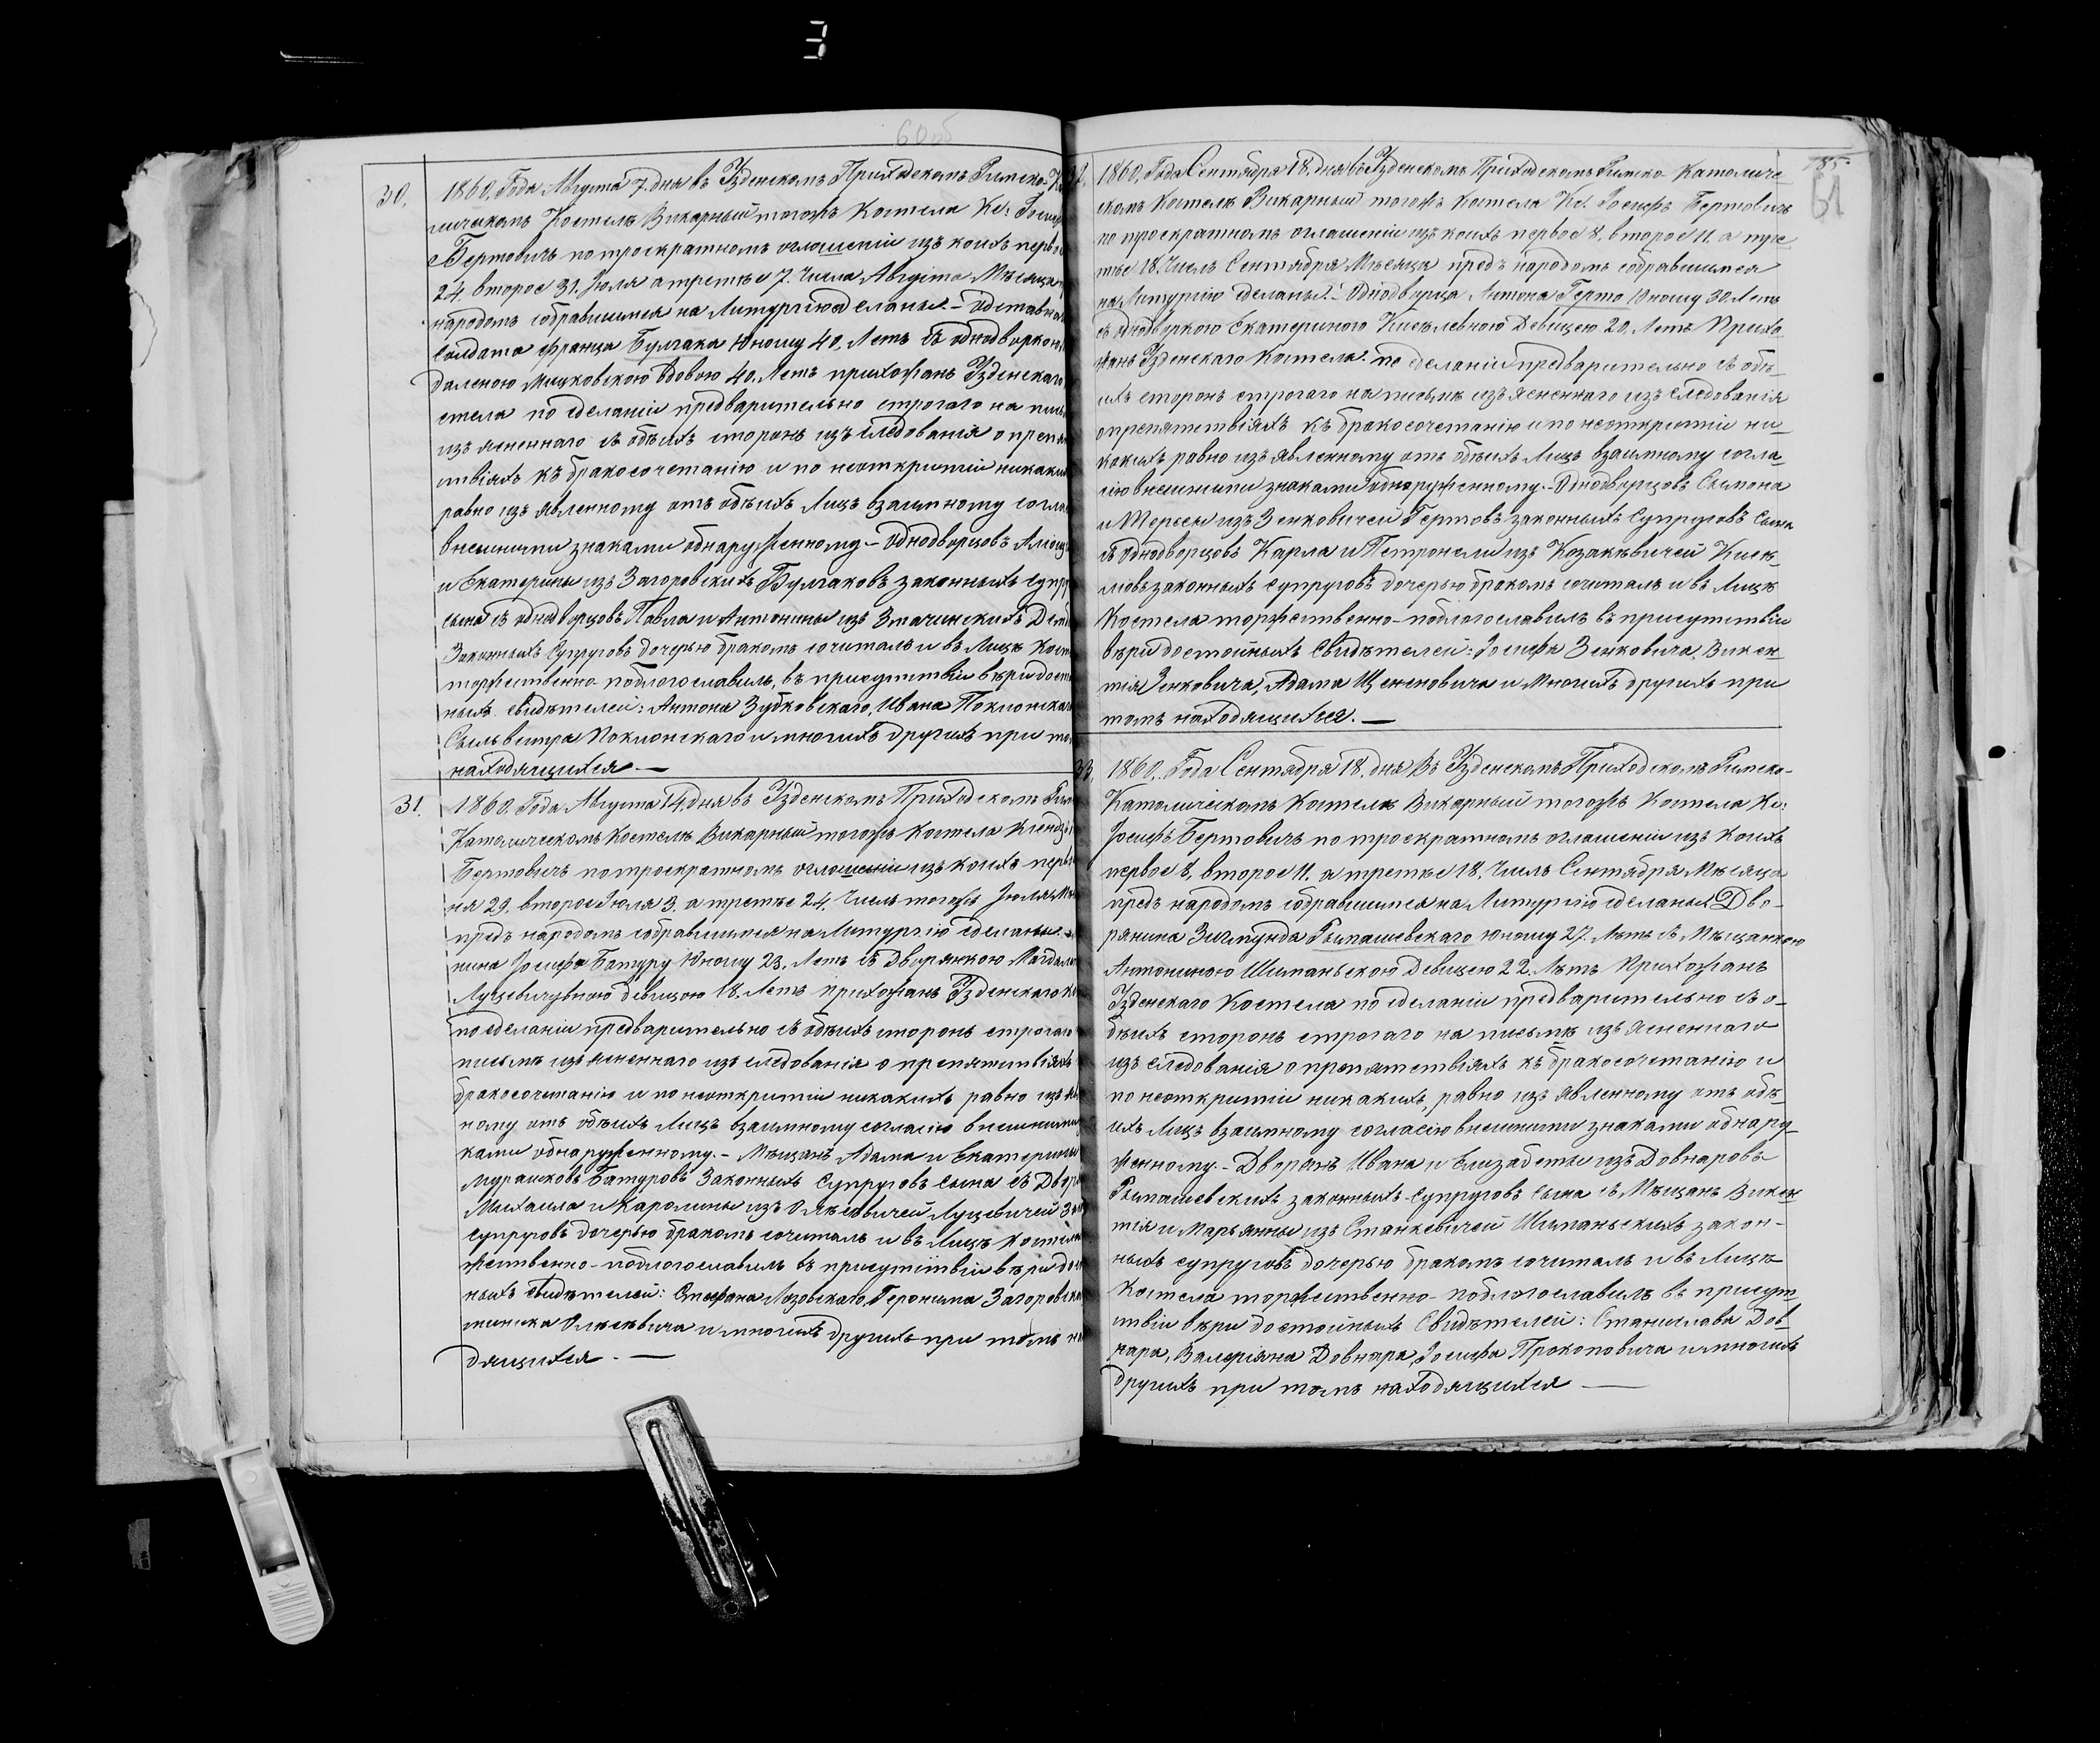 60об
30.
1860. Года Августа 7. дня въ Узденскомъ Приходскомъ Римско-Ка
лическомъ Костелѣ Викарный тогожъ Костела Кс: Іосиф
Бертовичъ по троекратномъ оглошеніи изъ коихъ перво
24. второе 31. Іюля а третье 7. Числа Августа Мѣсяца
народомъ собравшимся на Литургію сделаны. – Отставна
Солдата Франца Булгака Юношу 40. Летъ съ однодворкою
даленою Мицковскою вдовою 40. Летъ прихожанъ Узденскаго
стела по сделаніи предварительно строгаго на пись
изъясненнаго съ обѣихъ сторонъ изъследованія о препят
ствіяхъ къ бракосочетанію и по неоткритіи никаких
равно изъявленному отъ обѣихъ Лицъ взаимному согла
внешними знаками обнаруженному – Однодворцовъ
и Екатерины изъ Загоровскихъ Булгаковъ законныхъ супр
сына съ однодворцовъ Павла и Антонины изъ
Законныхъ Супруговъ дочерью бракомъ сочиталъ и въ Лицѣ Кост
торжественно поблогославилъ, въ присутствіи вѣри дост
ныхъ свидѣтелей: Антона Зубковскаго, Ивана Поклонскаг
Сыльвестра Поклонскаго и многихъ другихъ при том
находящихся. —
31.
1860. Года Августа 14. дня въ Узденскомъ Приходскомъ Рим
Католическомъ Костелѣ Викарный тогожъ Костела Ксендзъ
Бертовичъ по троекратномъ оглошеніи изъ коихъ перво
ня 29. второе Іюля 3. а третье 24. Числъ тогожъ Іюля Мѣ
предъ народомъ собравшимся на Литургію сделаны. –
нина Іосифа Батуру Юношу 23. Летъ съ Дворянкою Магдале
Луцевичувною девицою 18. Летъ прихожанъ Узденскаго К
по сделаніи предварительно съ обѣихъ сторонъ строгаго
письмѣ изъясненнаго изъследованія о препятствіяхъ
бракосочетанію и по неоткритіи никакихъ равно изъяв
ному отъ обѣихъ Лицъ взаимному согласію внешними
ками обнаруженному. – Мѣщанъ Адама и Екатерины
Мурашковъ Батуровъ Законныхъ Супруговъ сына съ Двор
Михаила и Каролины изъ Олѣсѣвичей Луцевичей За
супруговъ дочерью бракомъ сочиталъ и въ Лицѣ Костела
жественно поблогославилъ въ присутствіи вѣри до
ныхъ Свидѣтелей: Стефана Лозовскаго, Геронима Загоровска
миника Олѣсѣвича и многихъ другихъ при томъ на
дящихся. —
785
61
32.
1860. Года Сентября 18. дня въ Узденскомъ Приходскомъ Римско-Католиче-
скомъ Костелѣ Викарный тогожъ Костела Кс. Іосифъ Бертовичъ
по троекратномъ оглашеніи изъ коихъ первое 8. второе 11. а тре-
тье 18. Числъ Сентября Мѣсяца предъ народомъ собравшимся
на Литургію сделаны. – Однодворца Антона Герто Юношу 30 Летъ
съ однодворкою Екатериною Кисѣлевною Девицею 20. Летъ Прихо
жанъ Узденскаго Костела. по сделаніи предварительно съ обѣ-
ихъ сторонъ строгаго на письмѣ изъясненнаго изъследованія
о препятствіяхъ къ бракосочетанію и по неоткритіи ни-
какихъ равно изъявленному отъ обѣихъ Лицъ взаимному согла-
сію внешними знаками обноруженному. – Однодворцовъ Сымона
и Тересы изъ Зенковичей Гертовъ законныхъ Супруговъ Сына
съ однодворцовъ Карла и Петронели изъ Козакѣвичей Кисѣ-
лювъ законныхъ супруговъ дочерью бракомъ сочиталъ и въ Лицѣ
Костела торжественно поблогославилъ въ присутствіи
вѣри достойныхъ Свидѣтелей: Іосифа Зенковича, Викен-
тія Зенковича, Адама и Многихъ другихъ при
томъ находящихся. —
33.
1860. Года Сентября 18. дня Въ Узденскомъ Приходскомъ Римско-
Католическомъ Костелѣ Викарный тогожъ Костела Кс:
Іосифъ Бертовичъ по троекратномъ оглашеніи изъ коихъ
первое 8. второе 11. а третье 18. Числъ Сентября Мѣсяца
предъ народомъ собравшимся на Литургію сделаны. Дво-
рянина Зигмунда Рымашевскаго юношу 27. Лѣтъ съ Мѣщанкою
Антониною Шиманьскою Девицею 22. Лѣтъ Прихожанъ
Узденскаго Костела по сделаніи предварительно съ о-
бѣихъ сторонъ строгаго на письмѣ изъясненнаго
изъследованія о препятствіяхъ къ бракосочетанію и
по неоткритіи никакихъ, равно изъявленному отъ обѣ-
ихъ Лицъ взаимному согласію внешними знаками обнару-
женному. – Дворянъ Ивана и Елизабеты изъ Довнаровъ
Рымашевскихъ законныхъ супруговъ сына съ Мѣщанъ Викен
тія и Марьянны изъ Станкевичей Шиманьскихъ закон-
ныхъ супруговъ дочерью бракомъ сочиталъ и въ Лицѣ
Костела торжественно поблогославилъ въ присут-
ствіи вѣри достойныхъ Свидѣтелей: Станислава Дов-
нара, Валеріяна Довнара, Іосифа Прокоповича и многихъ
другихъ при томъ находящихся —